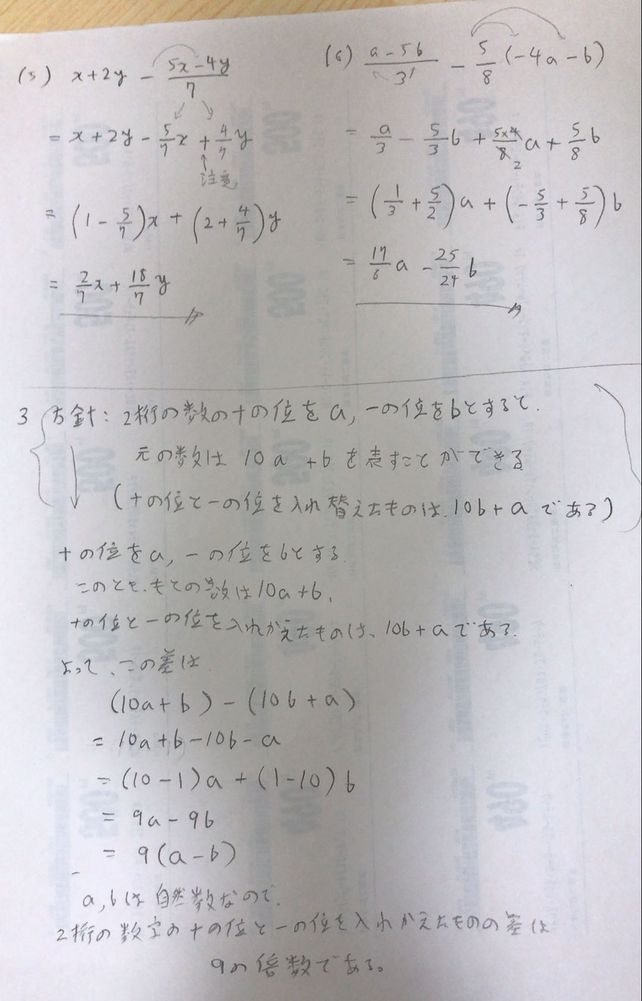 (5) x+2y - (5x-4y)/7
= x+2y - 5/7 x + 4/7 y
注意
= (1 - 5/7)x + (2 + 4/7)y
= 2/7 x + 18/7 y
(6) (a-5b)/3 - 5/8 (-4a-b)
= a/3 - 5/3 b + (5×4)/8 a + 5/8 b
2
= (1/3 + 5/2)a + (-5/3 + 5/8)b
= 17/6 a - 25/24 b
3 方針: 2桁の数の十の位をa, 一の位をbとすると、
元の数は 10a+b を表すことができる
(十の位と一の位を入れ替えたものは、10b+a である)
十の位をa, 一の位をbとする.
このとき、もとの数は10a+b,
十の位と一の位を入れかえたものは、10b+aである.
よって、この差は
(10a+b) - (10b+a)
= 10a+b-10b-a
= (10-1)a + (1-10)b
= 9a-9b
= 9(a-b)
a,bは自然数なので、
2桁の数字の十の位と一の位を入れかえたものの差は
9の倍数である。